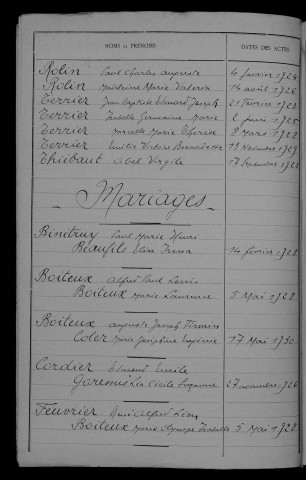 NOMS ET PRÉNOMS DATES DES ACTES
Rolin Paul Charles Auguste 4 février 1924
Rolin Madeleine Marie Valérie 14 août 1926
Terrier Jean Baptiste Edouard Joseph 21 février 1923
Terrier Isabelle Germaine Marie 2 1925
Terrier Marcelle Marie Thérèse 2 Mars 1928
Terrier Emilie Victoire Bernadette 13 novembre 1929
Thiébaut Abel Virgile 17 Septembre 1923
Mariages
Bénétruy Paul Marie Henri
Beaufils Elia Irma 14 février 1922
Boiteux Alfred Paul Louis
Boiteux Marie Laurence 5 Mai 1928
Boiteux Auguste Joseph Firmin
Coler Marie Joséphine Eugénie 17 Mai 1930
Cordier Edmond Emile
Garemus Léa Cécile Suzanne 27 novembre 1926
Feuvrier Alfred Léon
Boiteux Marie Isabelle 5 Mai 1928